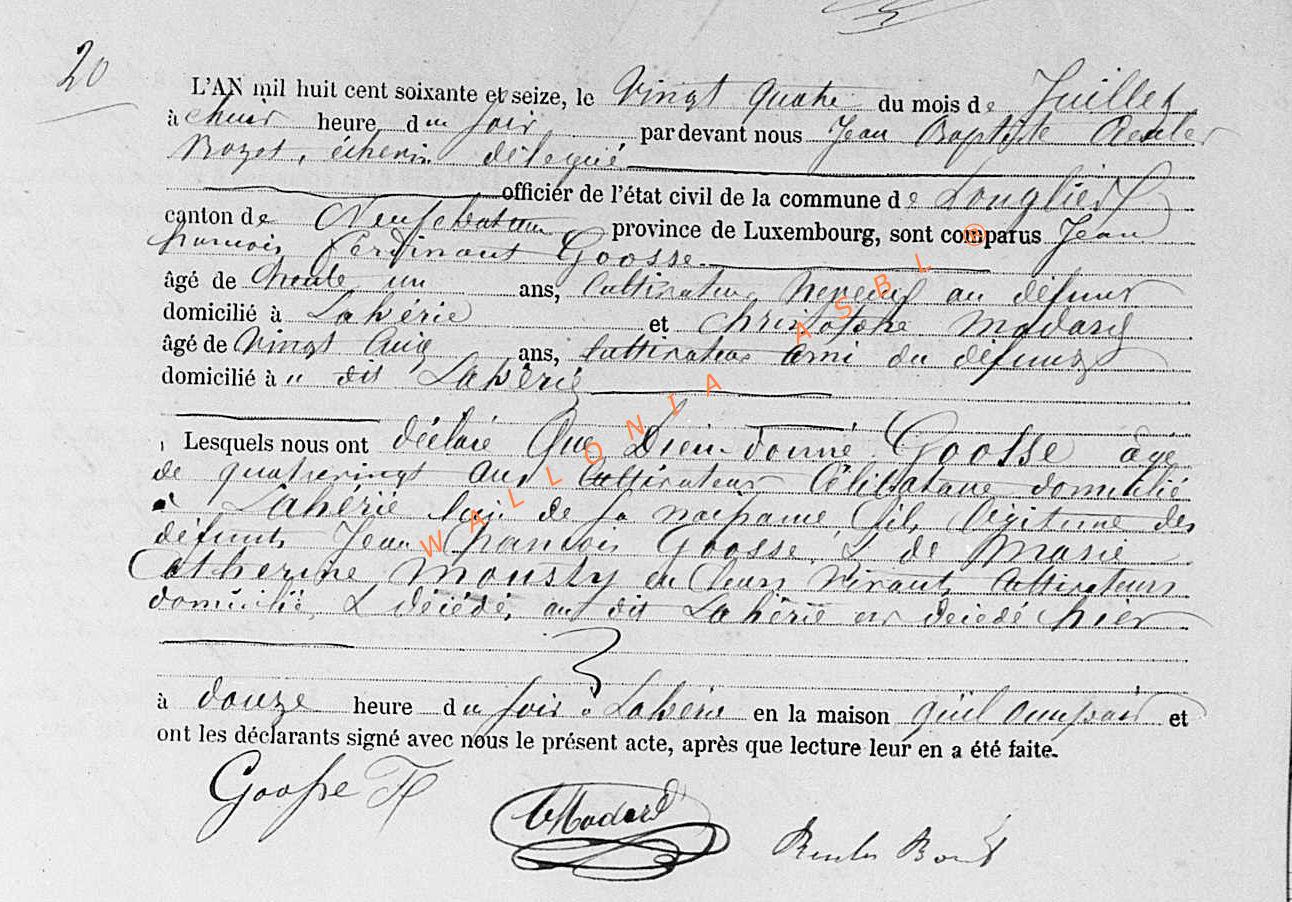 20
L'AN mil huit cent soixante et seize, le Vingt quatre du mois de Juillet
à heure du soir pardevant nous Jean Baptiste
Rozet, échevin délegué
officier de l'état civil de la commune de Longlier
canton de Neufchateau province de Luxembourg, sont comparus Jean
francois ferdinant Goosse
âgé de trente un ans, Cultivateur Neveux au défunt
domicilié à Lahérie et Christophe Modard
âgé de Vingt Cinq ans, Cultivateur ami du défunt
domicilié à u dit Lahérie
Lesquels nous ont déclaré Que Dieudonné Goosse âgé
de quatrevingt ans Cultivateur Célibataire domicilié
à Lahérie lieu de sa naissance fils légitime des
défunts Jean francois Goosse & de Marie
Catherine Mousty en leurs vivant Cultivateurs
domiciliés & décédés au dit Lahérie est décédé hier
à douze heure du soir à Lahérie en la maison qu'il occupait et
ont les déclarants signé avec nous le présent acte, après que lecture leur en a été faite.
Goosse F
CModard
WALLONIA ASBL ®